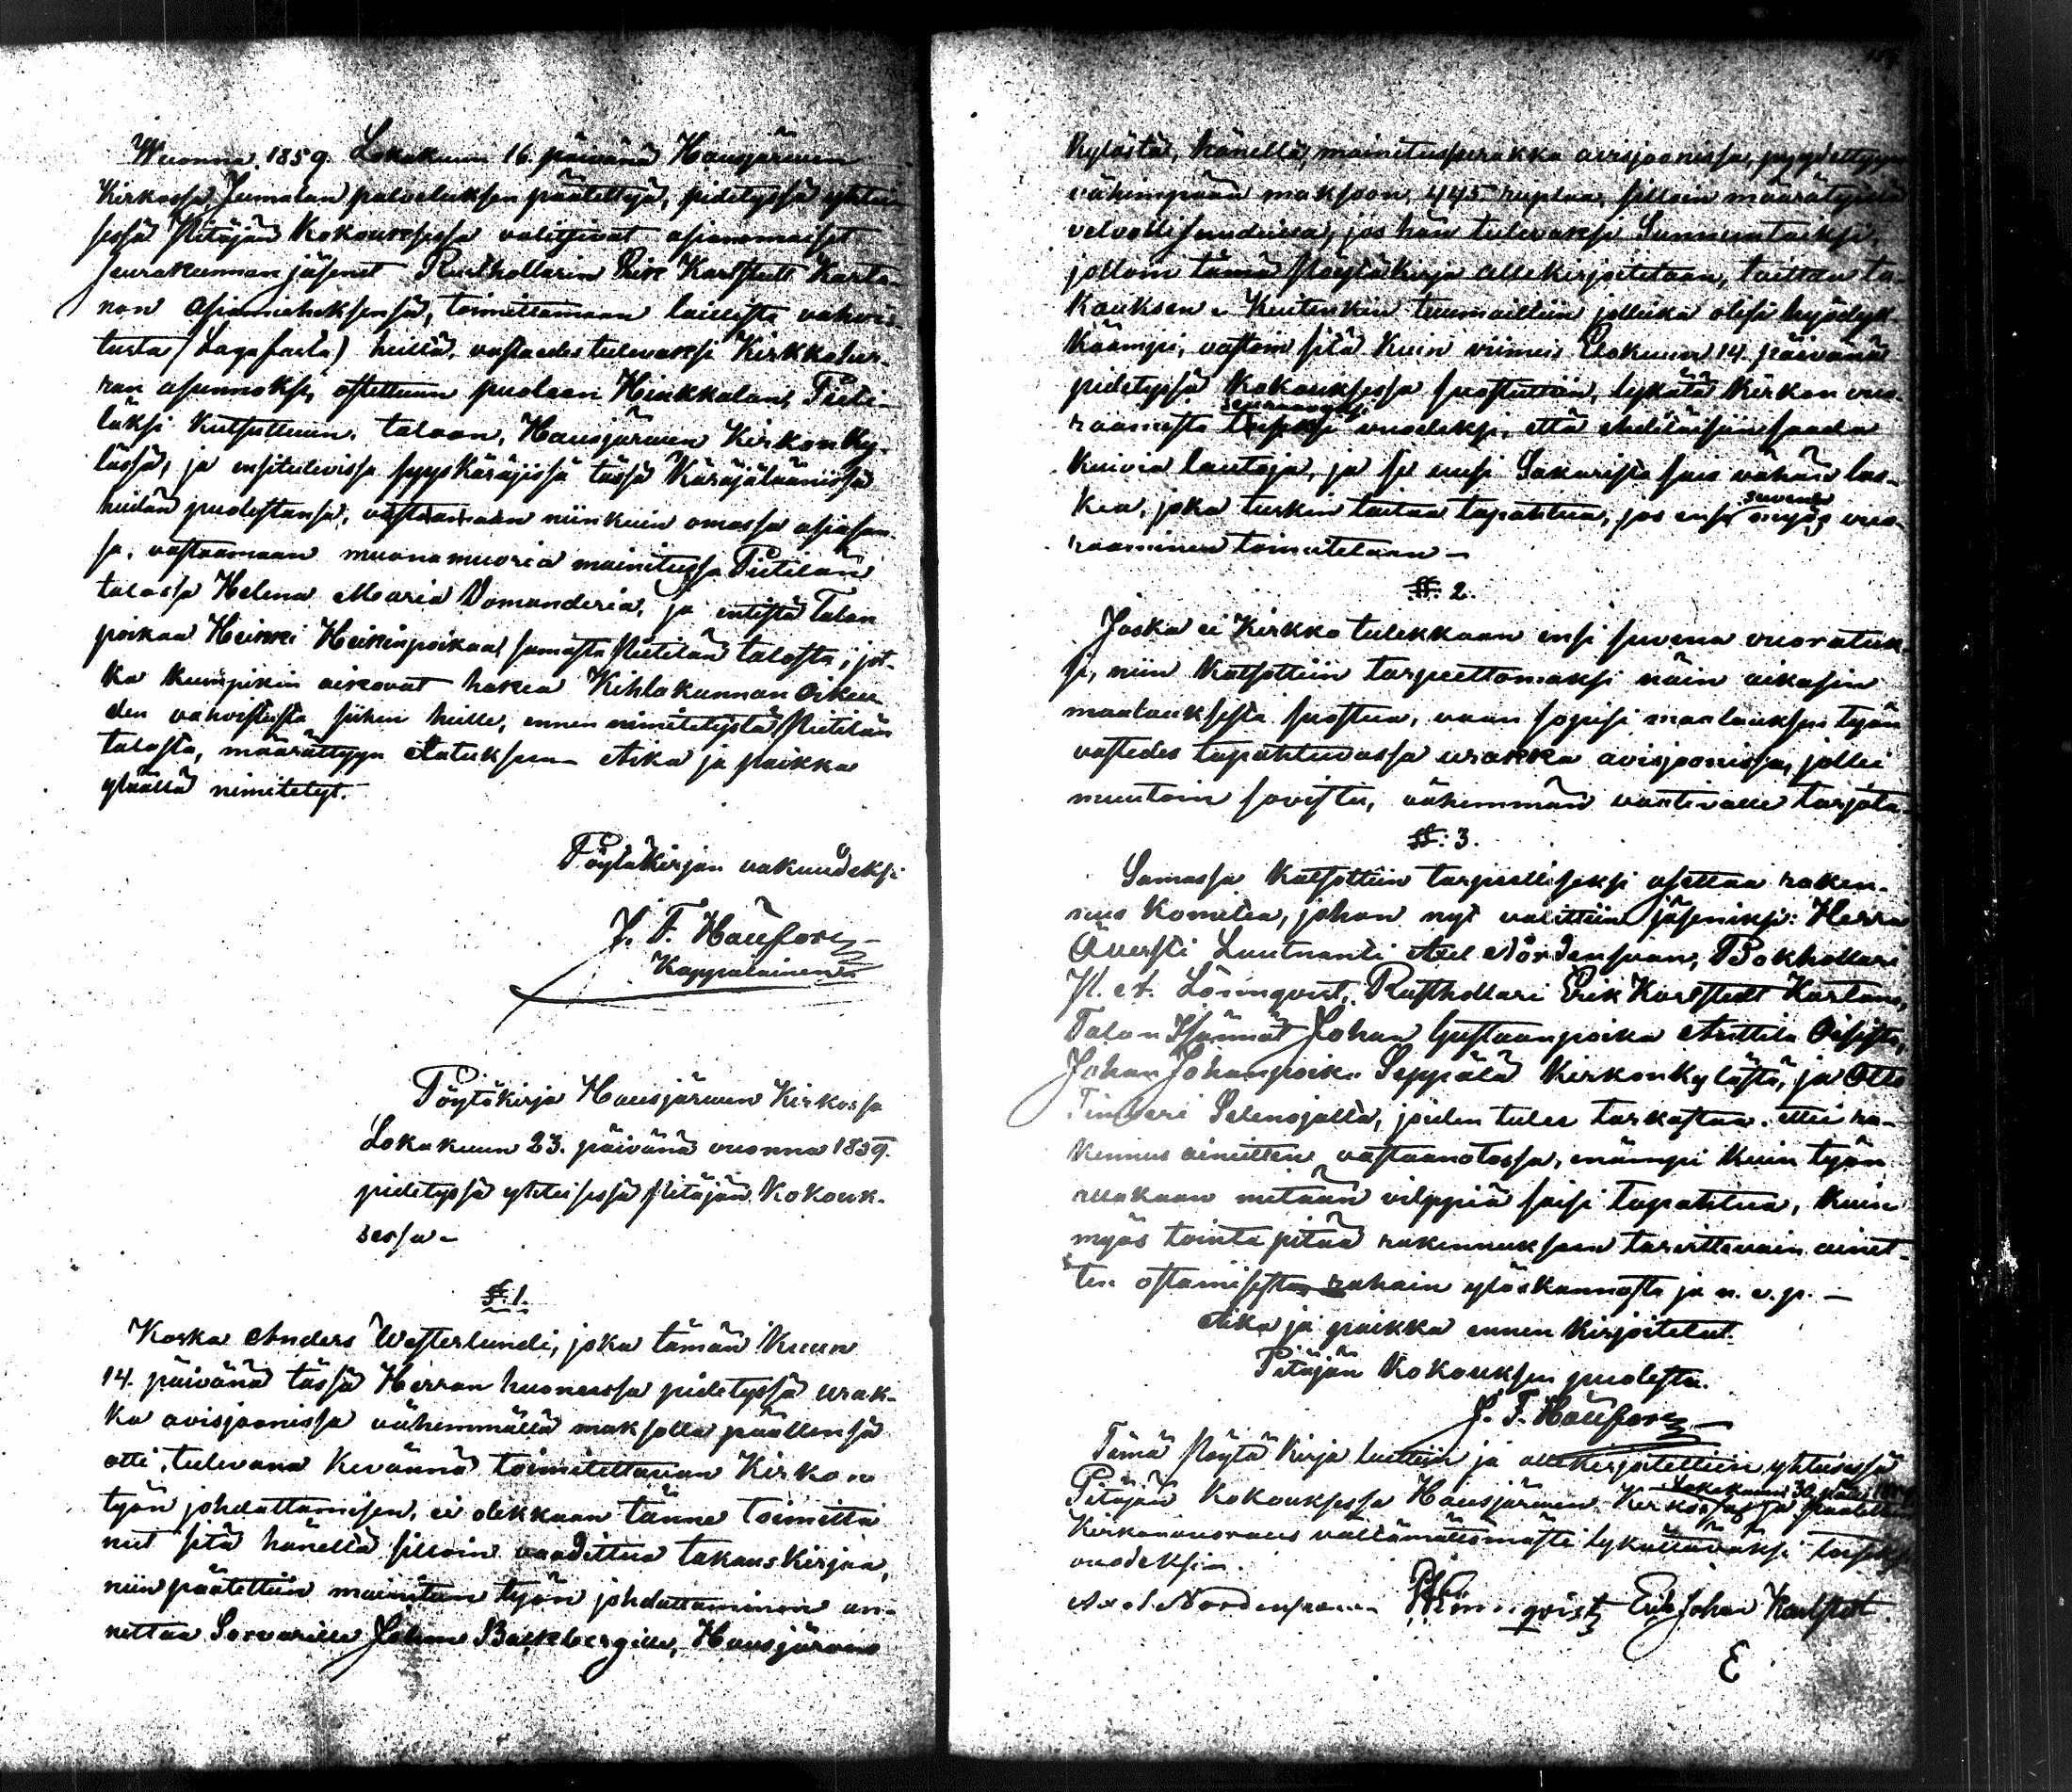 Wuonna 1859. Lokakuun 16 päivänä Hausjärwen
Kirkossa Jumalan palveluksen päätettyä, pidetyssä yhtei-
sessä Pitäjän Kokouksessa valitsivat asianomaiset
seurakunnan jäsenet Rusthollarin Erik Karlstedt Karta-
non Asiamieheksensä, toimittamaan laillista vahvis-
tusta (Lagafarta) heillä, vastaedes tulevaksi Kirkkoher-
ran asunnoksi, ostettuun puoleen Heikkalan, Pieti-
läksi kutsuttuun, taloon, Hausjärwen Kirkonky-
lässä, ja ensitulevissa syys Käräjissä tässä Käräjäläänissä
heidän puolestansa, vastaamaan niinkuin omassa asiasan-
sa, vastaamaan muonamuoria mainitussa Pietilän
talossa Helena Maaria Domanderia, ja entistä Talon
poikaa Heikki Heikinpoikaa samasta Pietilän talosta, jot-
ka kumpikin aikovat hakea Kihlakunnan Oikeu-
den vahvistusta siihen heille, ennen nimitetystä Pietilän
talosta, määrättyyn Elatukseen. Aika ja paikka
ylläällä nimitetyt.
Pöytäkirjan vakuudeksi
J. F. Häufors
Kappalainen
Pöytäkirja Hausjärwen Kirkossa
Lokakuun 23. päivänä vuonna 1859.
pidetyssä yhteisessä Pitäjän Kokouk-
sessa
§. 1.
Koska Anders Westerlundi, joka tämän kuun
14. päivänä tässä Herran huoneessa pidetyssä urak-
ka avisjoonissa vähemmällä maksolla päällensä
otti, tulevana keväännä toimitettavan Kirkon
työn johdattamisen, ei olekkaan tänne toimitta
nut sitä hänellä silloin vaadittua takaus kirjaa,
niin päätettiin mainitun työn johdattaminen an-
nettaa Sorvarille Johan Backbergille, Hausjärven
kylästä, hänellä, mainitussa urakka avisjoonissa, pyydettyyn
vähimpään maksoon, 445 ruplaa, silloin määrätyillä
velvollisuudeilla, jos hän tulevaksi Sunnuntaiksi,
jolloin tämä Pöytäkirja allekirjoitetaan, taittaa ta-
kauksen. Kuitenkin tuumailtiin jolleika olisi hyödyk-
käämpi, vastoin sitä kuin viimeis Elokuun 14. päivänä
pidetyssä Kokouksessa suostuttiin, lykätä kirkon vuo-
raamista seuraavaksi vuodeksi, että ehdittäisiin saada
kuivia lautoja, ja se uusi Sakaristo sais vähän las-
kea, joka turkin taitaa tapahtua, jos ensi suvena myös vuo-
raaminen toimitetaan
§. 2.
Joska ei Kirkko tulekkaan ensi suvena vuoratuk-
si, niin katsottiin tarpeettomaksi näin aikasin
maalauksesta suostua, vaan sopisi maalauksen työn
vastedes tapahtuvassa urakka avisjoonissa, jollei
muutoin sovistu, vähemmän vaativalle tarjota.
§. 3.
Samassa katsottiin tarpeelliseksi asettaa raken-
nus Komitea, johon nyt valittiin jäseniksi: Herra
Översti Luutnanti Axel Nordensvan, Bokhollari
H. A. Lönnqvist, Rusthollari Erik Karlstedt Kartano,
Talon Isännät Johan Gustaanpoika Anttila Oisista,
Johan Johanpoik. Seppälä Kirkonkylästä, ja Otto
Timperi Selenojalta, joiden tulee tarkastaa, ettei ra-
kennus aineitten vastaanotossa, enämpi kuin työn
aikaan mitään vilppiä saisi tapahtua, kuin
myös tointa pitää rakennukseen tarvittevain ainet-
ten ostamisesta, rahain ylöskannosta ja n. e. p.
Aika ja paikka ennen kirjoitetut.
Pitäjän Kokouksen puolesta.
J. F. Häufors
Tämä Pöytä kirja luettiin ja allekirjoitettiin yhteisessä
Pitäjän Kokouksessa Hausjärwen Kirkossa Lokakuun 30 päiv. 1859 ja päätettiin
Kirkonvuoraus välttämättömästi lykättäväksi toiseksi
vuodeksi.
Axel Nordensvan H Lönnqvist Erik Johan Karlstedt